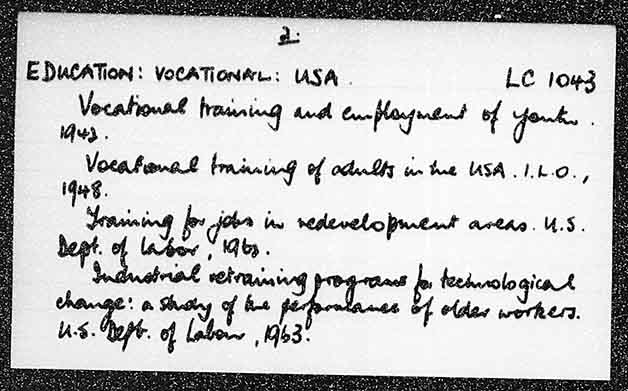 2.
EDUCATION: VOCATIONAL: USA. LC 1043
Vocational training and employment of youth.
1943.
Vocational training of adults in the USA. I.L.O.,
1948.
Training for jobs in redevelopment areas. U.S.
Dept. of Labor,
Industrial retraining programs for technological
change: a study of the performance of older workers.
U.S. Dept. of Labour, 1963.